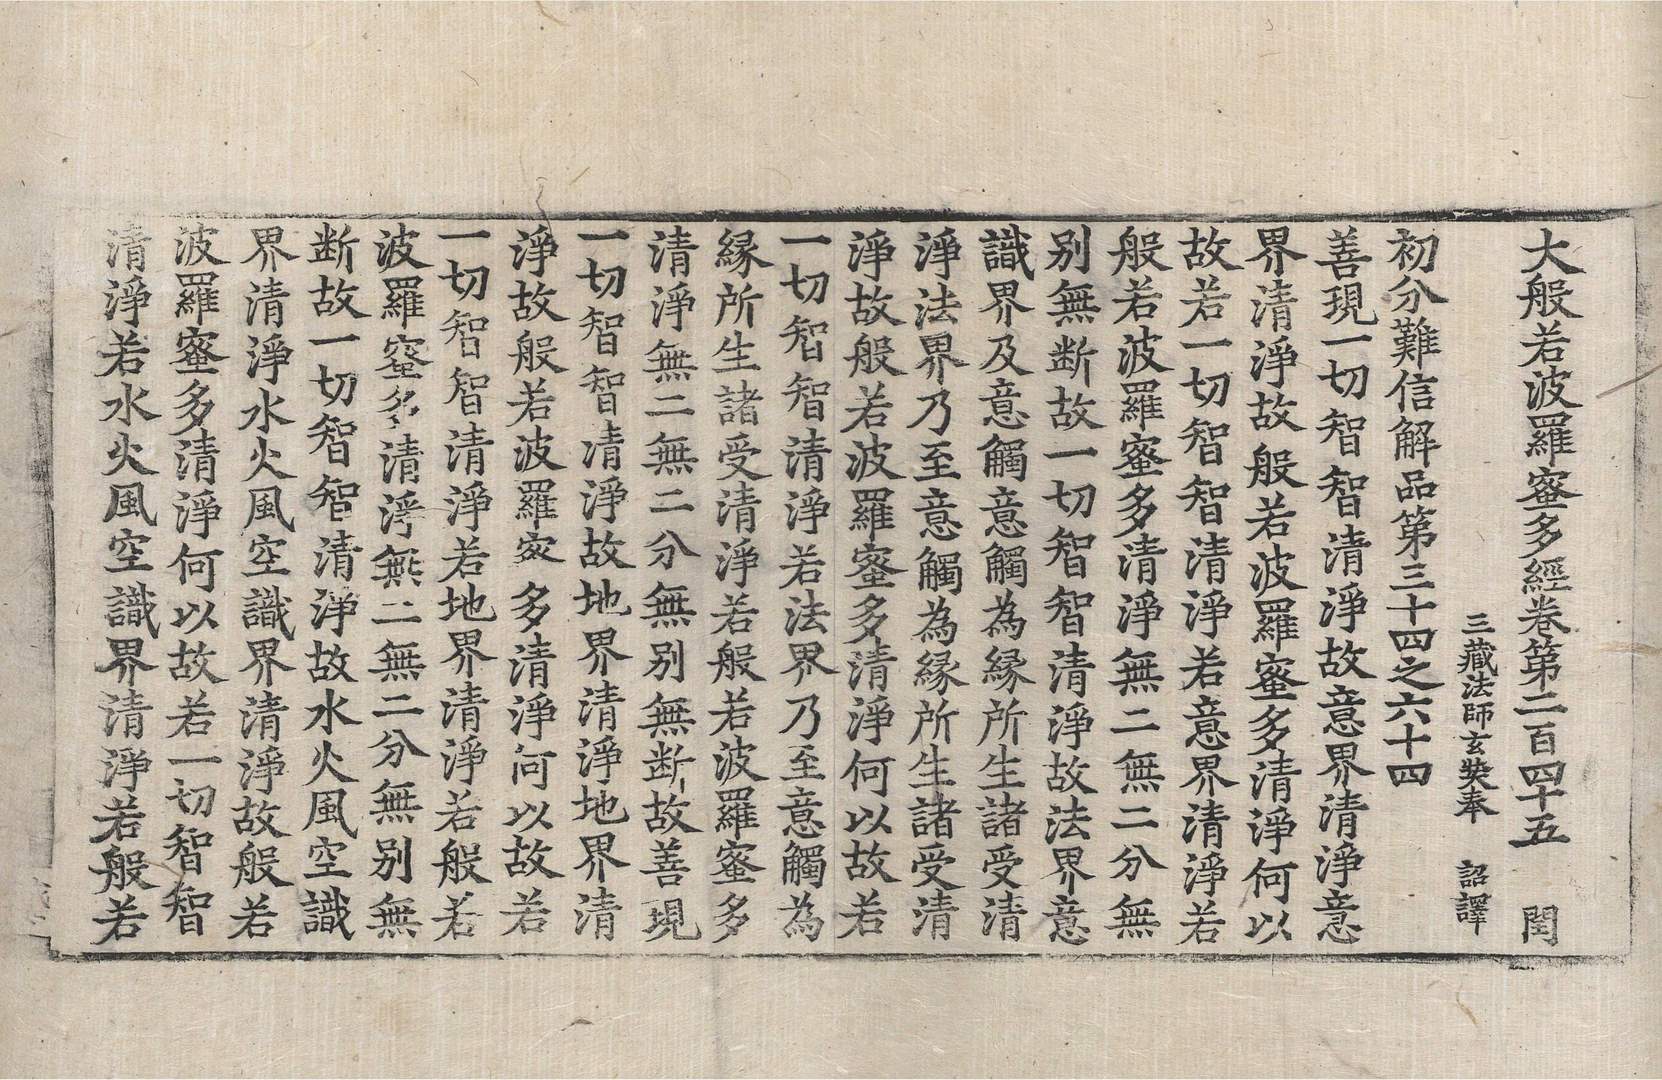 大般若波羅蜜多經卷第二百四十五　閏
三藏法師玄奘奉　詔譯
初分難信解品第三十四之六十四
善現一切智智清淨故意界清淨意
界清淨故般若波羅蜜多清淨何以
故若一切智智清淨若意界清淨若
般若波羅蜜多清淨無二無二分無
別無斷故一切智智清淨故法界意
識界及意觸意觸為緣所生諸受清
淨法界乃至意觸為緣所生諸受清
淨故般若波羅蜜多清淨何以故若
一切智智清淨若法界乃至意觸為
緣所生諸受清淨若般若波羅蜜多
清淨無二無二分無別無斷故善現
一切智智清淨故地界清淨地界清
淨故般若波羅蜜多清淨何以故若
一切智智清淨若地界清淨若般若
波羅蜜多清淨無二無二分無別無
断故一切智智清淨故水火風空識
界清淨水火風空識界清淨故般若
波羅蜜多清淨何以故若一切智智
清淨若水火風空識界清淨若般若